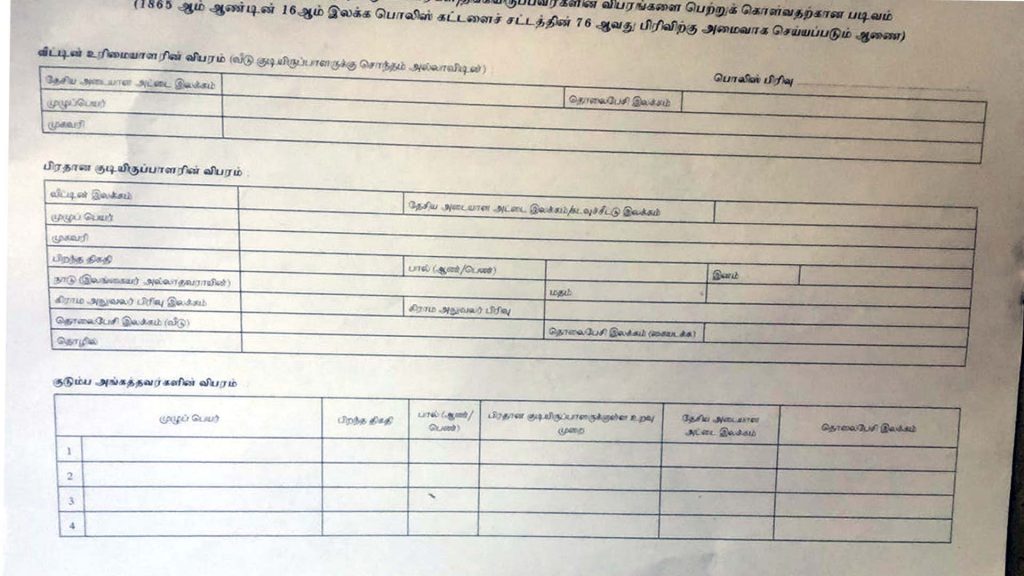 விபரங்களை பெற்றுக் கொள்வதற்கான படிவம்
(1865 ஆம் ஆண்டின் 16ஆம் இலக்க பொலிஸ் கட்டளைச் சட்டத்தின் 76 ஆவது பிரிவிற்கு அமைவாக செய்யப்படும் ஆணை)
வீட்டின் உரிமையாளரின் விபரம் (வீடு குடியிருப்பாளருக்கு சொந்தம் அல்லாவிடின்)
பொலிஸ் பிரிவு
தேசிய அடையாள அட்டை இலக்கம்
தொலைபேசி இலக்கம்
முழுப்பெயர்
முகவரி
பிரதான குடியிருப்பாளரின் விபரம்
வீட்டின் இலக்கம்
தேசிய அடையாள அட்டை இலக்கம்/கடவுச்சீட்டு இலக்கம்
முழுப் பெயர்
முகவரி
பிறந்த திகதி
பால் (ஆண்/பெண்)
இனம்
நாடு (இலங்கையர் அல்லாதவராயின்)
மதம்
கிராம அலுவலர் பிரிவு இலக்கம்
கிராம அலுவலர் பிரிவு
தொலைபேசி இலக்கம் (வீடு)
தொலைபேசி இலக்கம் (கையடக்க)
தொழில்
குடும்ப அங்கத்தவர்களின் விபரம்
முழுப் பெயர்
பிறந்த திகதி
பால் (ஆண்/
பெண்)
பிரதான குடியிருப்பாளருக்குள்ள உறவு
முறை
தேசிய அடையாள
அட்டை இலக்கம்
தொலைபேசி இலக்கம்
1
2
3
4